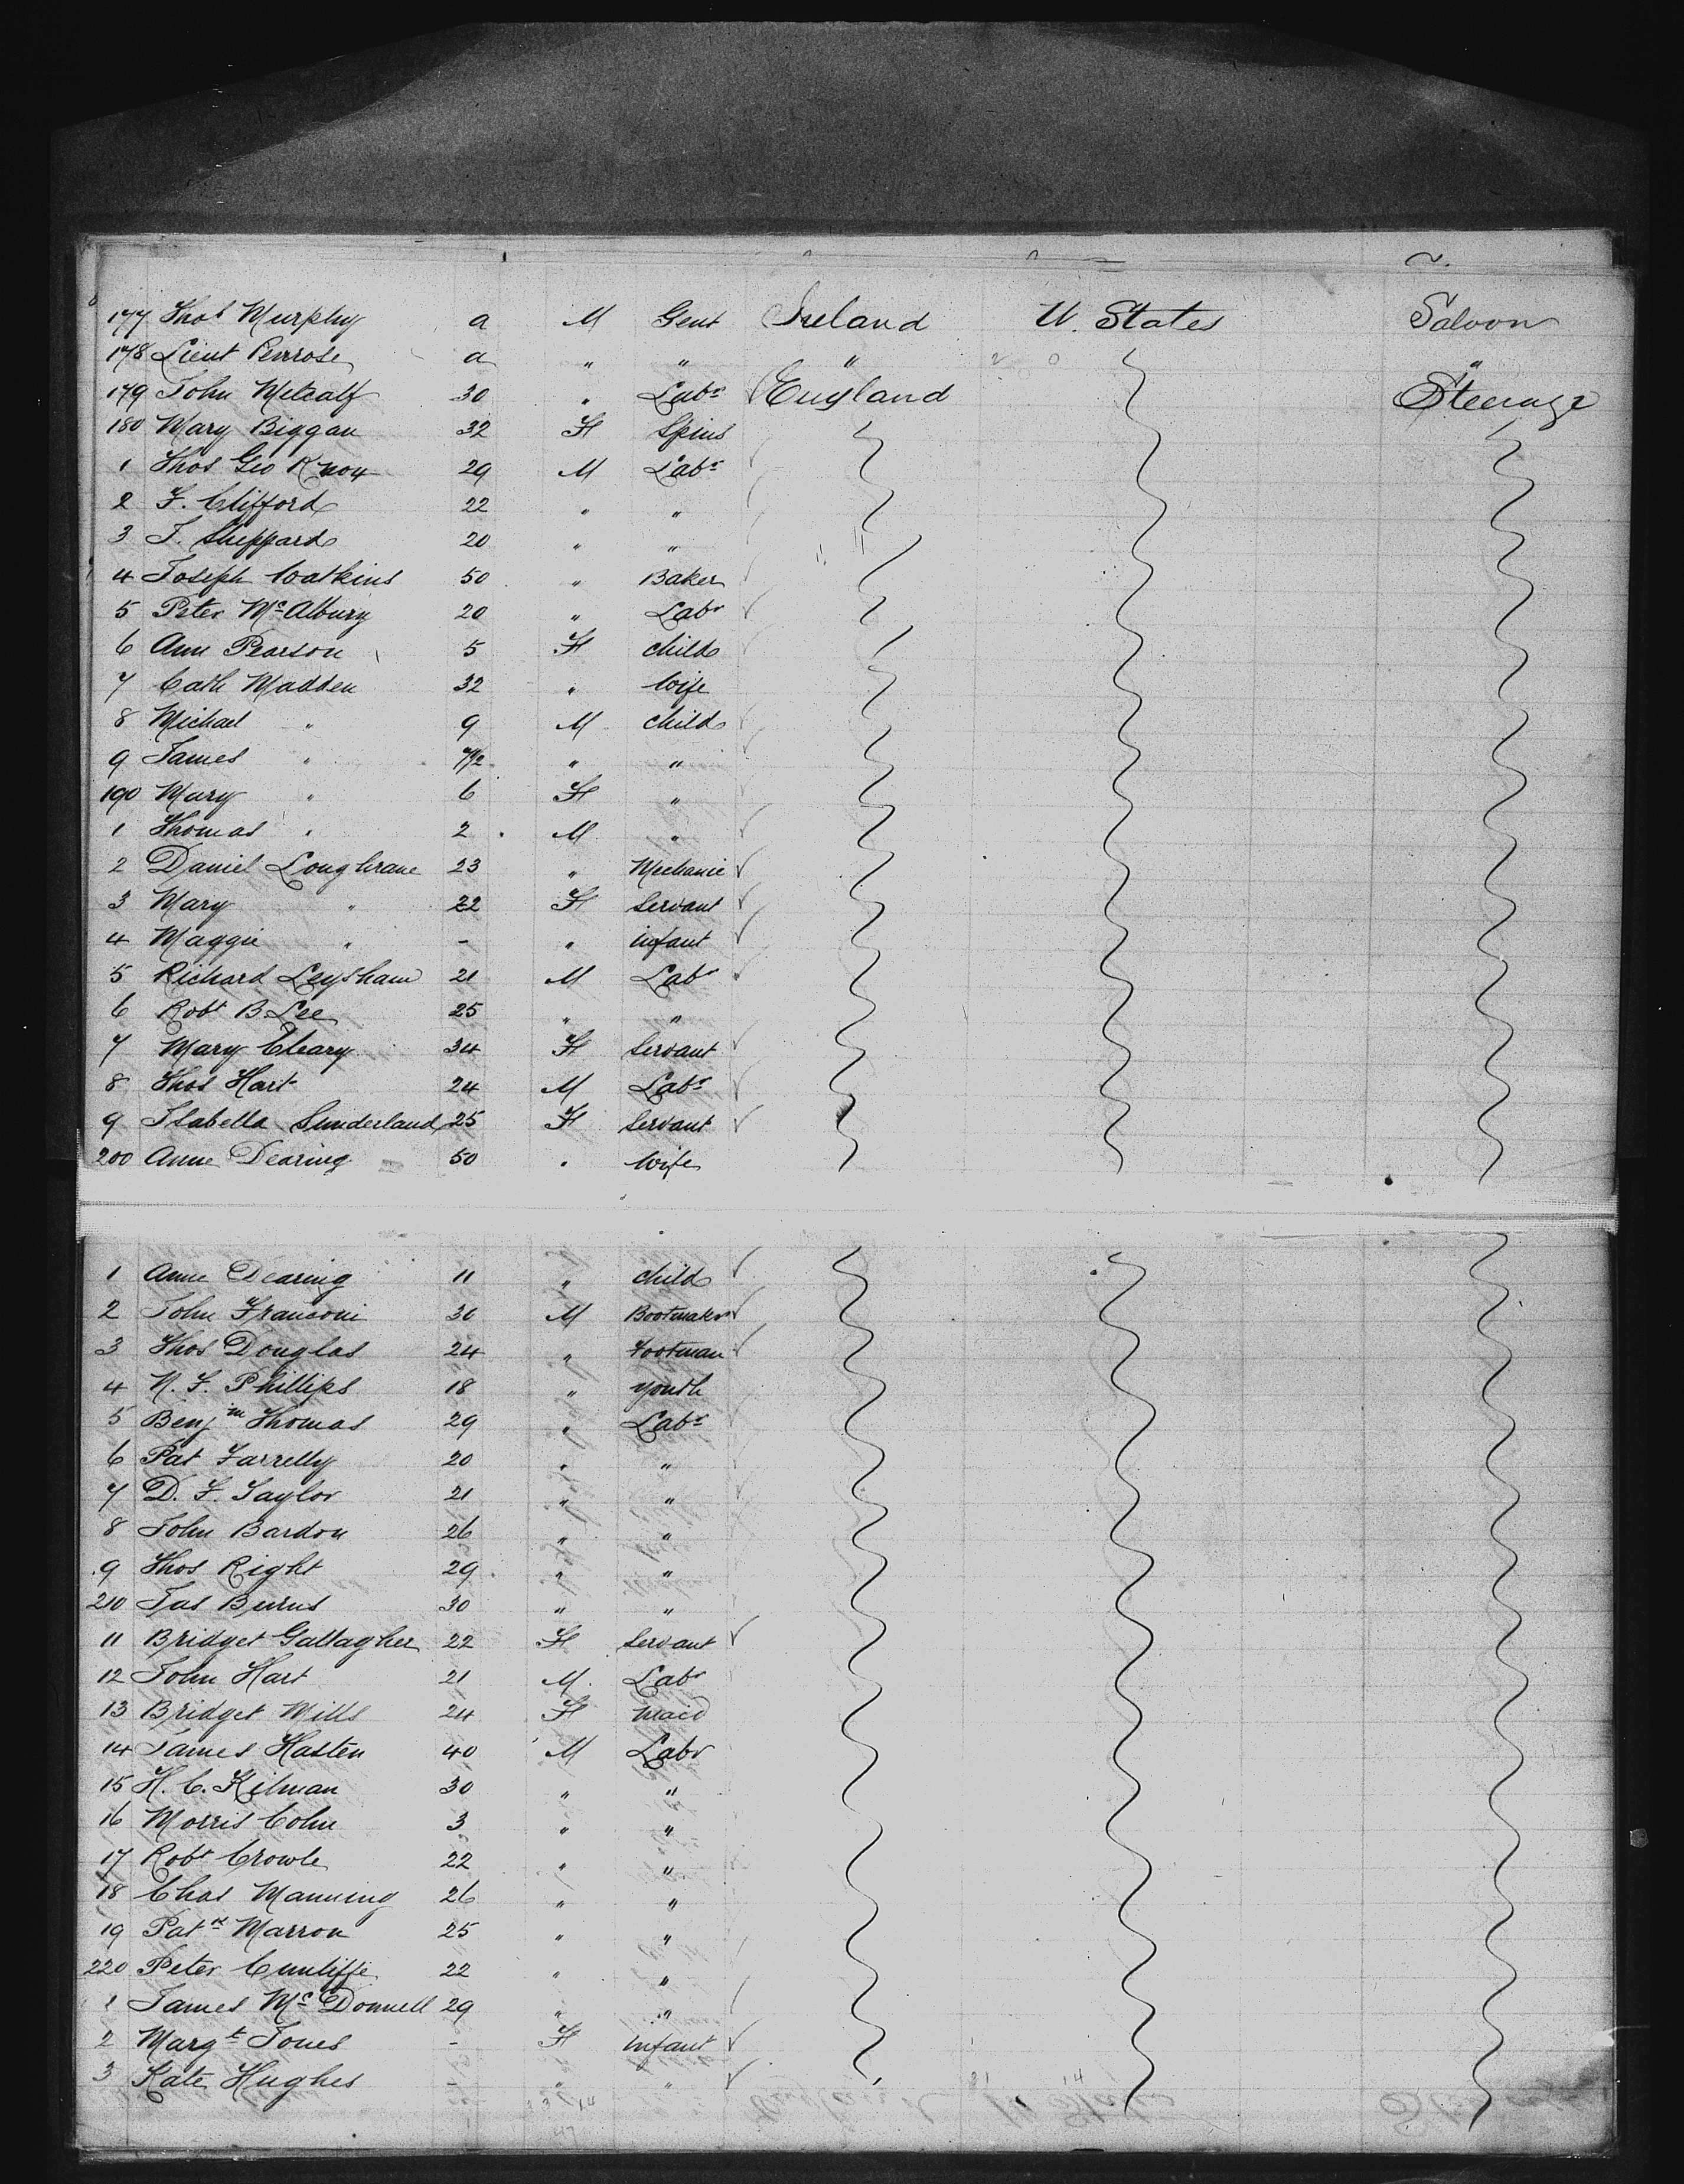 177 Thos Murphy a M Gent Ireland U. States Saloon
178 Lieut Penrose a " " " "
179 John Metcalf 30 " Labr England Steerage
180 Mary Biggan 32 F Spins
1 Thos Geo Knox 29 M Labr
2 F. Clifford 22 " "
3 T. Sheppard 20 " "
4 Joseph Watkins 50 " Baker
5 Peter McAlbury 20 " Labr
6 Ann Pearson 5 F child
7 Cath Madden 32 " Wife
8 Michael " 9 M child
9 James " 7/12 " "
190 Mary " 6 F "
1 Thomas " 2 M "
2 Daniel Loughrane 23 " Mechanic
3 Mary " 22 F Servant
4 Maggie " - " infant
5 Richard Leysham 21 M Labr
6 Robt B Lee 25 " "
7 Mary Cleary 34 F Servant
8 Thos Hart 24 M Labr
9 Isabella Sunderland 25 F Servant
200 Anne Dearing 50 " Wife
1 Anne Dearing 11 " child
2 John Franconi 30 M Bootmaker
3 Thos Douglas 24 " Footman
4 N. F. Phillips 18 " youth
5 Benjm Thomas 29 " Labr
6 Pat Farrelly 20 " "
7 D. F. Taylor 21 " "
8 John Bardon 26 " "
9 Thos Right 29 " "
210 Jas Burns 30 " "
11 Bridget Gallagher 22 F Servant
12 John Hart 21 M Labr
13 Bridget Mills 24 F Maid
14 James Hasten 40 M Labr
15 H. C. Kilman 30 " "
16 Morris Cohn 3 " "
17 Robt Crowle 22 " "
18 Chas Manning 26 " "
19 Patk Marron 25 " "
220 Peter Cunliffe 22 " "
1 James McDonnell 29 " "
2 Margt Jones - F infant
3 Kate Hughes - " "